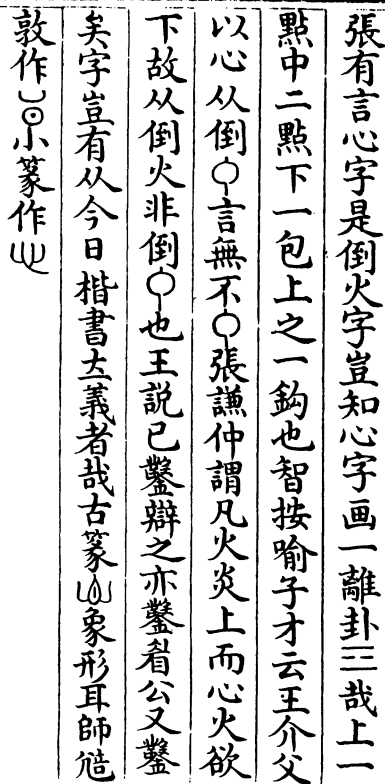 張有言心字是倒火字豈知心字画一離卦☲哉上一
點中二點下一包上之一鈎也智按喻子才云王介父
以心从倒言無不張謙仲謂凡火炎上而心火欲
下故从倒火非倒也王説已鑿辯之亦鑿眉公又鑿
矣字豈有从今日楷書立義者哉古篆象形耳師
敦作小篆作